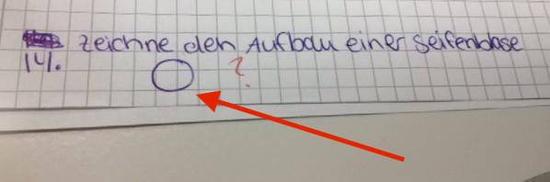 zeichne den Aufbau einer Seifenblase
14.
?